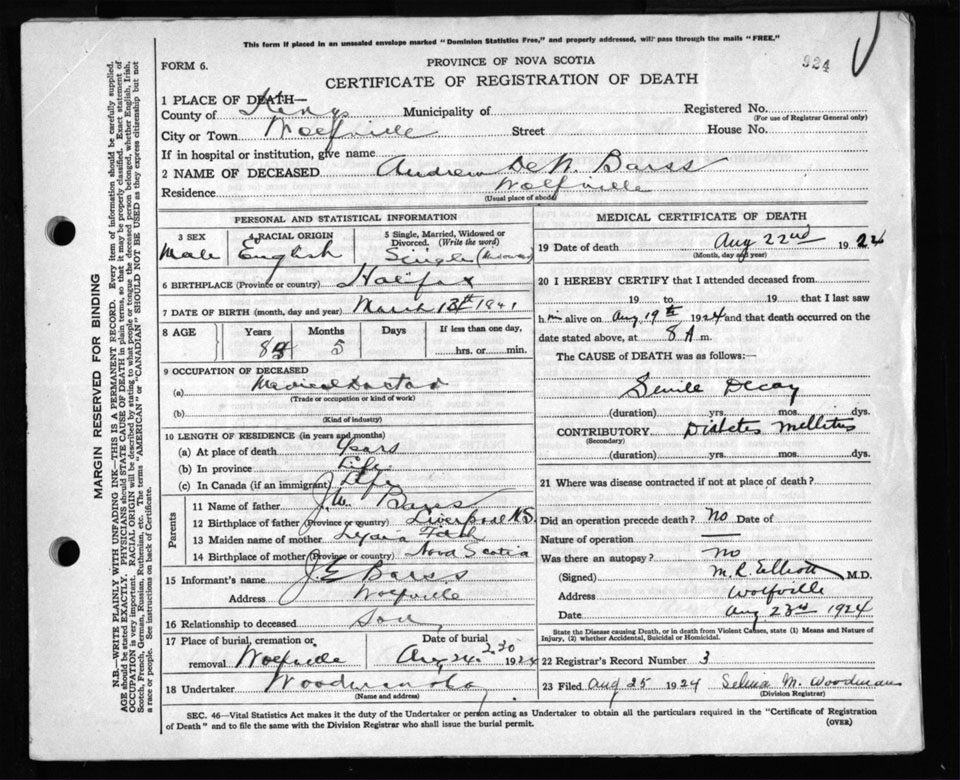 This form if placed in an unsealed envelope marked "Dominion Statistics Free," and properly addressed, will pass through the mails "FREE."
FORM 6.
PROVINCE OF NOVA SCOTIA
924
CERTIFICATE OF REGISTRATION OF DEATH
1 PLACE OF DEATH—
County of Kings Municipality of Registered No.
(For use of Registrar General only)
City or Town Wolfville Street House No.
If in hospital or institution, give name
2 NAME OF DECEASED Andrew DeW. Barss
Residence Wolfville
(Usual place of abode)
PERSONAL AND STATISTICAL INFORMATION
3 SEX 4 RACIAL ORIGIN 5 Single, Married, Widowed or Divorced. (Write the word)
Male English Single (Widower)
6 BIRTHPLACE (Province or country) Halifax
7 DATE OF BIRTH (month, day and year) March 13th 1841
8 AGE Years Months Days If less than one day,
83 5 hrs. or min.
9 OCCUPATION OF DECEASED
(a) Medical Doctor
(Trade or occupation or kind of work)
(b)
(Kind of industry)
10 LENGTH OF RESIDENCE (in years and months)
(a) At place of death years
(b) In province Life
(c) In Canada (if an immigrant) Life
Parents
11 Name of father J.W. Barss
12 Birthplace of father (Province or country) Liverpool N.S.
13 Maiden name of mother Lydia
14 Birthplace of mother (Province or country) Nova Scotia
15 Informant's name J.E. Barss
Address Wolfville
16 Relationship to deceased Son
17 Place of burial, cremation or removal Wolfville
Date of burial 2.30
Aug 24. 1924
18 Undertaker Woodman & Co,
(Name and address)
MEDICAL CERTIFICATE OF DEATH
19 Date of death Aug 22nd 1924
(Month, day and year)
20 I HEREBY CERTIFY that I attended deceased from
19 to 19 that I last saw
him alive on Aug 19th 1924 and that death occurred on the
date stated above, at 8 A m.
The CAUSE of DEATH was as follows:—
Senile Decay
(duration) yrs. mos. dys.
CONTRIBUTORY Diabetes Mellitus
(Secondary)
(duration) yrs. mos. dys.
21 Where was disease contracted if not at place of death?
Did an operation precede death? No Date of
Nature of operation —
Was there an autopsy? no
(Signed) M.R. Elliott M.D.
Address Wolfville
Date Aug 23rd 1924
State the Disease causing Death, or in death from Violent Causes, state (1) Means and Nature of
Injury, (2) whether Accidental, Suicidal or Homicidal.
22 Registrar's Record Number 3
23 Filed Aug 25 1924 Selina M. Woodman
(Division Registrar)
SEC. 46—Vital Statistics Act makes it the duty of the Undertaker or person acting as Undertaker to obtain all the particulars required in the "Certificate of Registration
of Death" and to file the same with the Division Registrar who shall issue the burial permit.
(OVER)
MARGIN RESERVED FOR BINDING
N.B.—WRITE PLAINLY WITH UNFADING INK—THIS IS A PERMANENT RECORD. Every item of information should be carefully supplied.
AGE should be stated EXACTLY. PHYSICIANS should STATE CAUSE OF DEATH in plain terms, so that it may be properly classified. Exact statement of
OCCUPATION is very important. RACIAL ORIGIN will be described by stating to what people or tongue the deceased person belonged, whether English, Irish,
Scotch, French, German, Russian, Ruthenian, etc. The terms "AMERICAN" or "CANADIAN" SHOULD NOT BE USED as they express citizenship but not
a race or people. See instructions on back of Certificate.